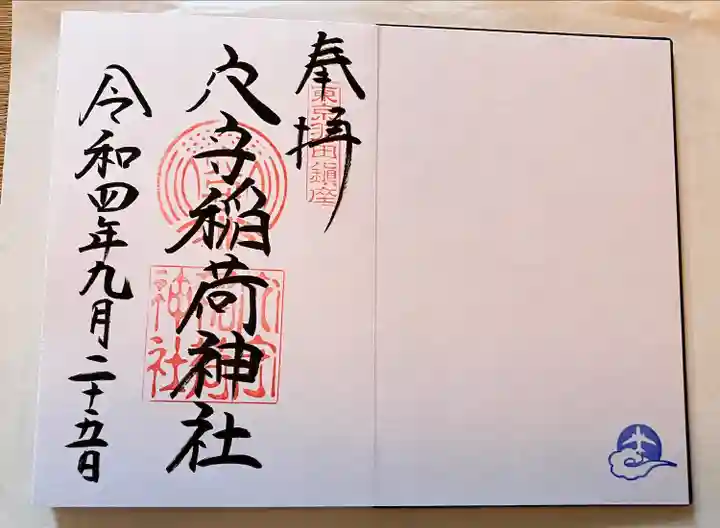 奉拝
東京羽田鎮座
穴守稲荷神社
穴守
稲荷
神社
令和四年九月二十五日